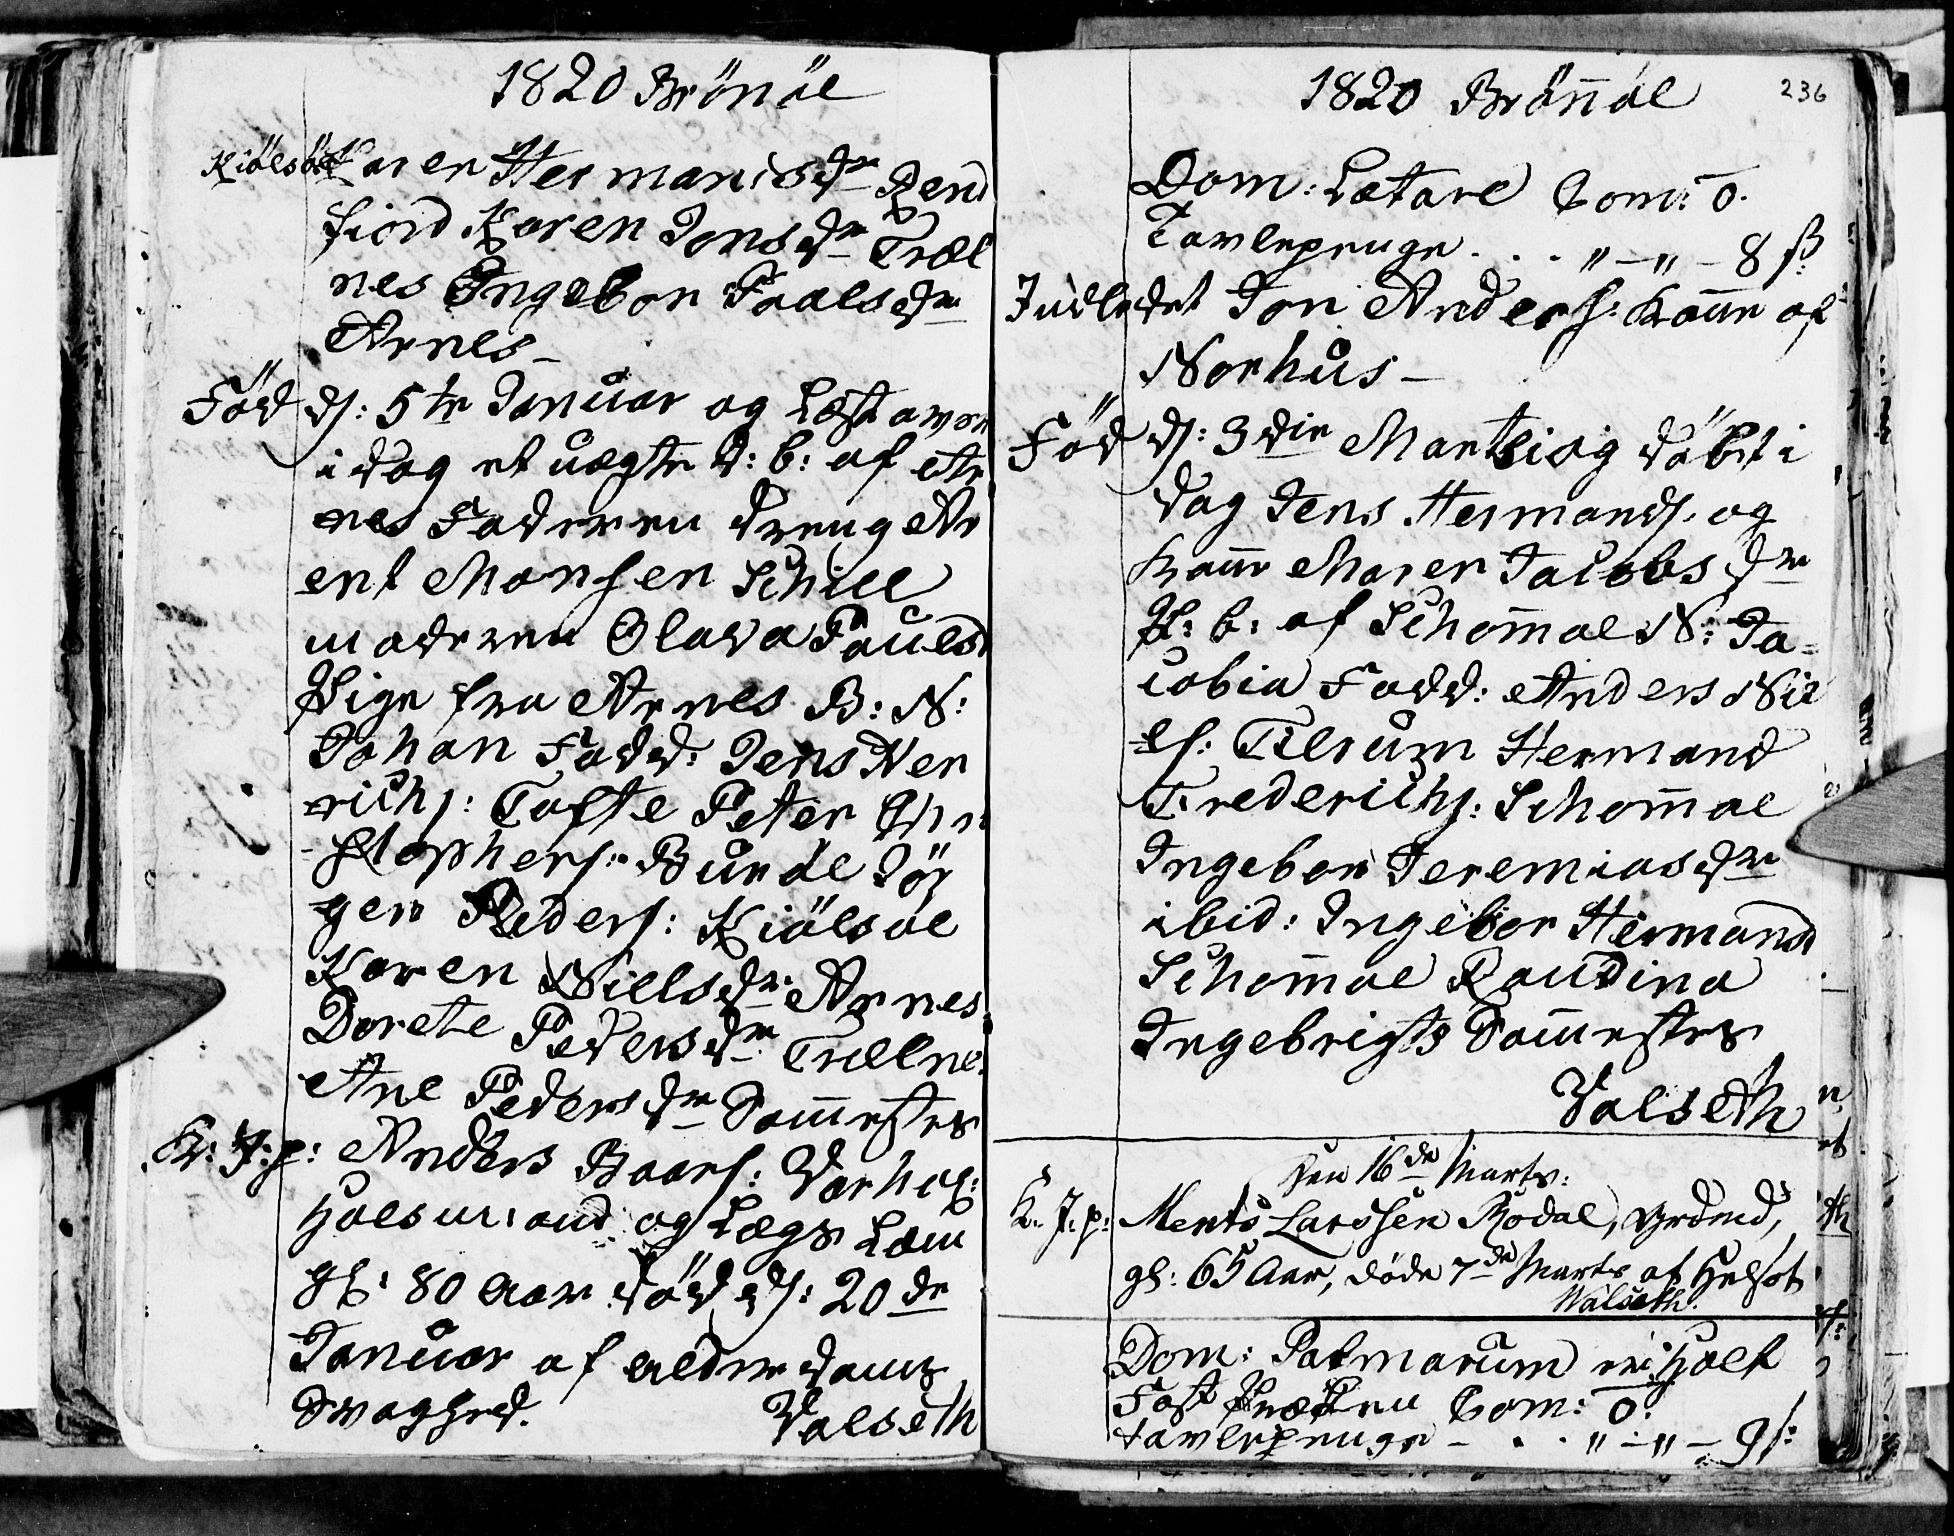 1820 Brönöe
Kiölsöe Karen Hermansdr Rend
fiord Karen Jonsdr Træl
nes Ingebor Poelsdr
Arnes
Föd d: 5te Januar og
i dag et uægte d: b: af Ar
nes Faderen dreng Ar
ent Monsen Schill
moderen Olava Paulsd
Pige fra Arnes B: N:
Johan Fadd: Jens Hen
richs: Tofte Peter Chri
stophers: Burøe Jör
gen Peders: Kiölsöe
Karen Nielsdr Arnes
Dorete Pedersdr Trælne
Ane Pedersdr Sömnæstes
Kr: J: p: Anders Baars:
og Lægs Lem
gl: 80 Aar död d: 20de
Januar af alderdoms
Svaghed. Valseth
1820 Brönöe 236
Dom: Lætare Com: 0.
Tavlepenge . . . " — " — 8 ß
Indledet Jon Anders: Kone af
Norhus —
Föd d: 3die Martsi og döbt i
dag Jens Hermands: og
Kone Maren Jacobsdr
P: b: af Schomoe N: Ja-
cobia Fadd: Anders Nie
ls: Tilrum Hermand
Frederichs: Schomoe
Ingebor Jeremiasdr
ibid: Ingebor Hermand
Schomoe Paulina
Ingebrigts Sömnæstes
Valseth
Den 16de Marts:
K: J: p: Ments Larssen Rodal,
gl: 65 Aar, døde 7de Marts af
Walseth.
Dom: Palmarum
Com: 0.
tavlepenge — . . " — " — 9 s: